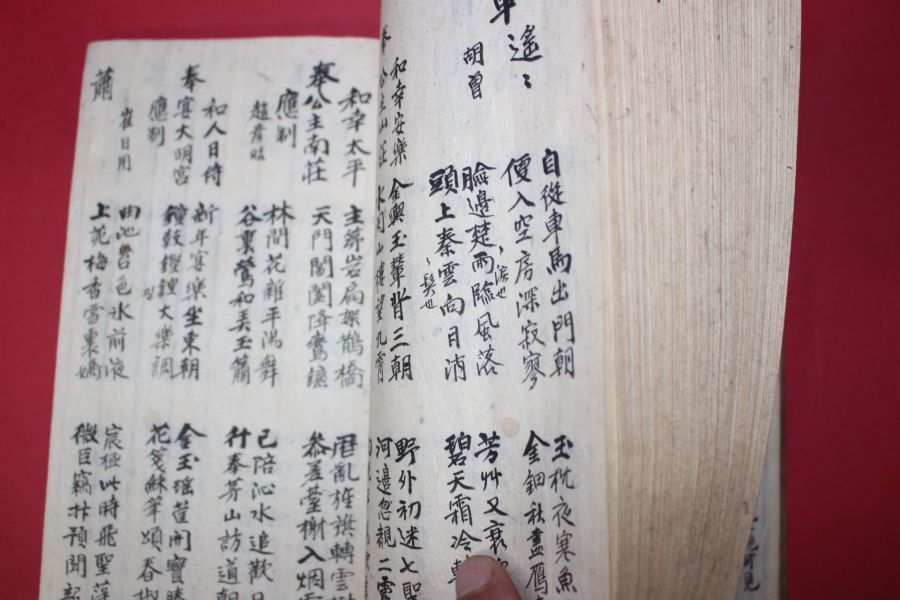 車遙〻
胡曾
自從車馬出門朝
便入空房深寂寥
玉枕夜寒魚
金鈿秋盡鴈
臉邊楚雨臨風落
頭上秦雲向日消
淚也
髩也
芳艸又衰
碧天霜冷
和幸安樂
公主山莊
金輿玉輦背三朝
水閣山樓望九霄
野外初迷七聖
河邊忽覩二靈
和幸太平
公主南莊
奉
應制
趙彦昭
主第岩扃架鵲橋
天門閶闔降鸞鑣
曆亂旌旗轉雲
參差臺榭入烟
林間花雜平陽舞
谷裏鶯和弄玉簫
已陪沁水追歡
行奉芳山訪道
和人日侍
奉宴大明宮
應制
崔日用
新年宴樂坐東朝
鐘鼓鏗鍠大樂調
金玉瑤筐開寶勝
花箋綵筆頌春椒
曲池苔色氷前液
上苑梅香雪裏嬌
宸極此時飛聖藻
微臣竊抃預聞韶
蕭